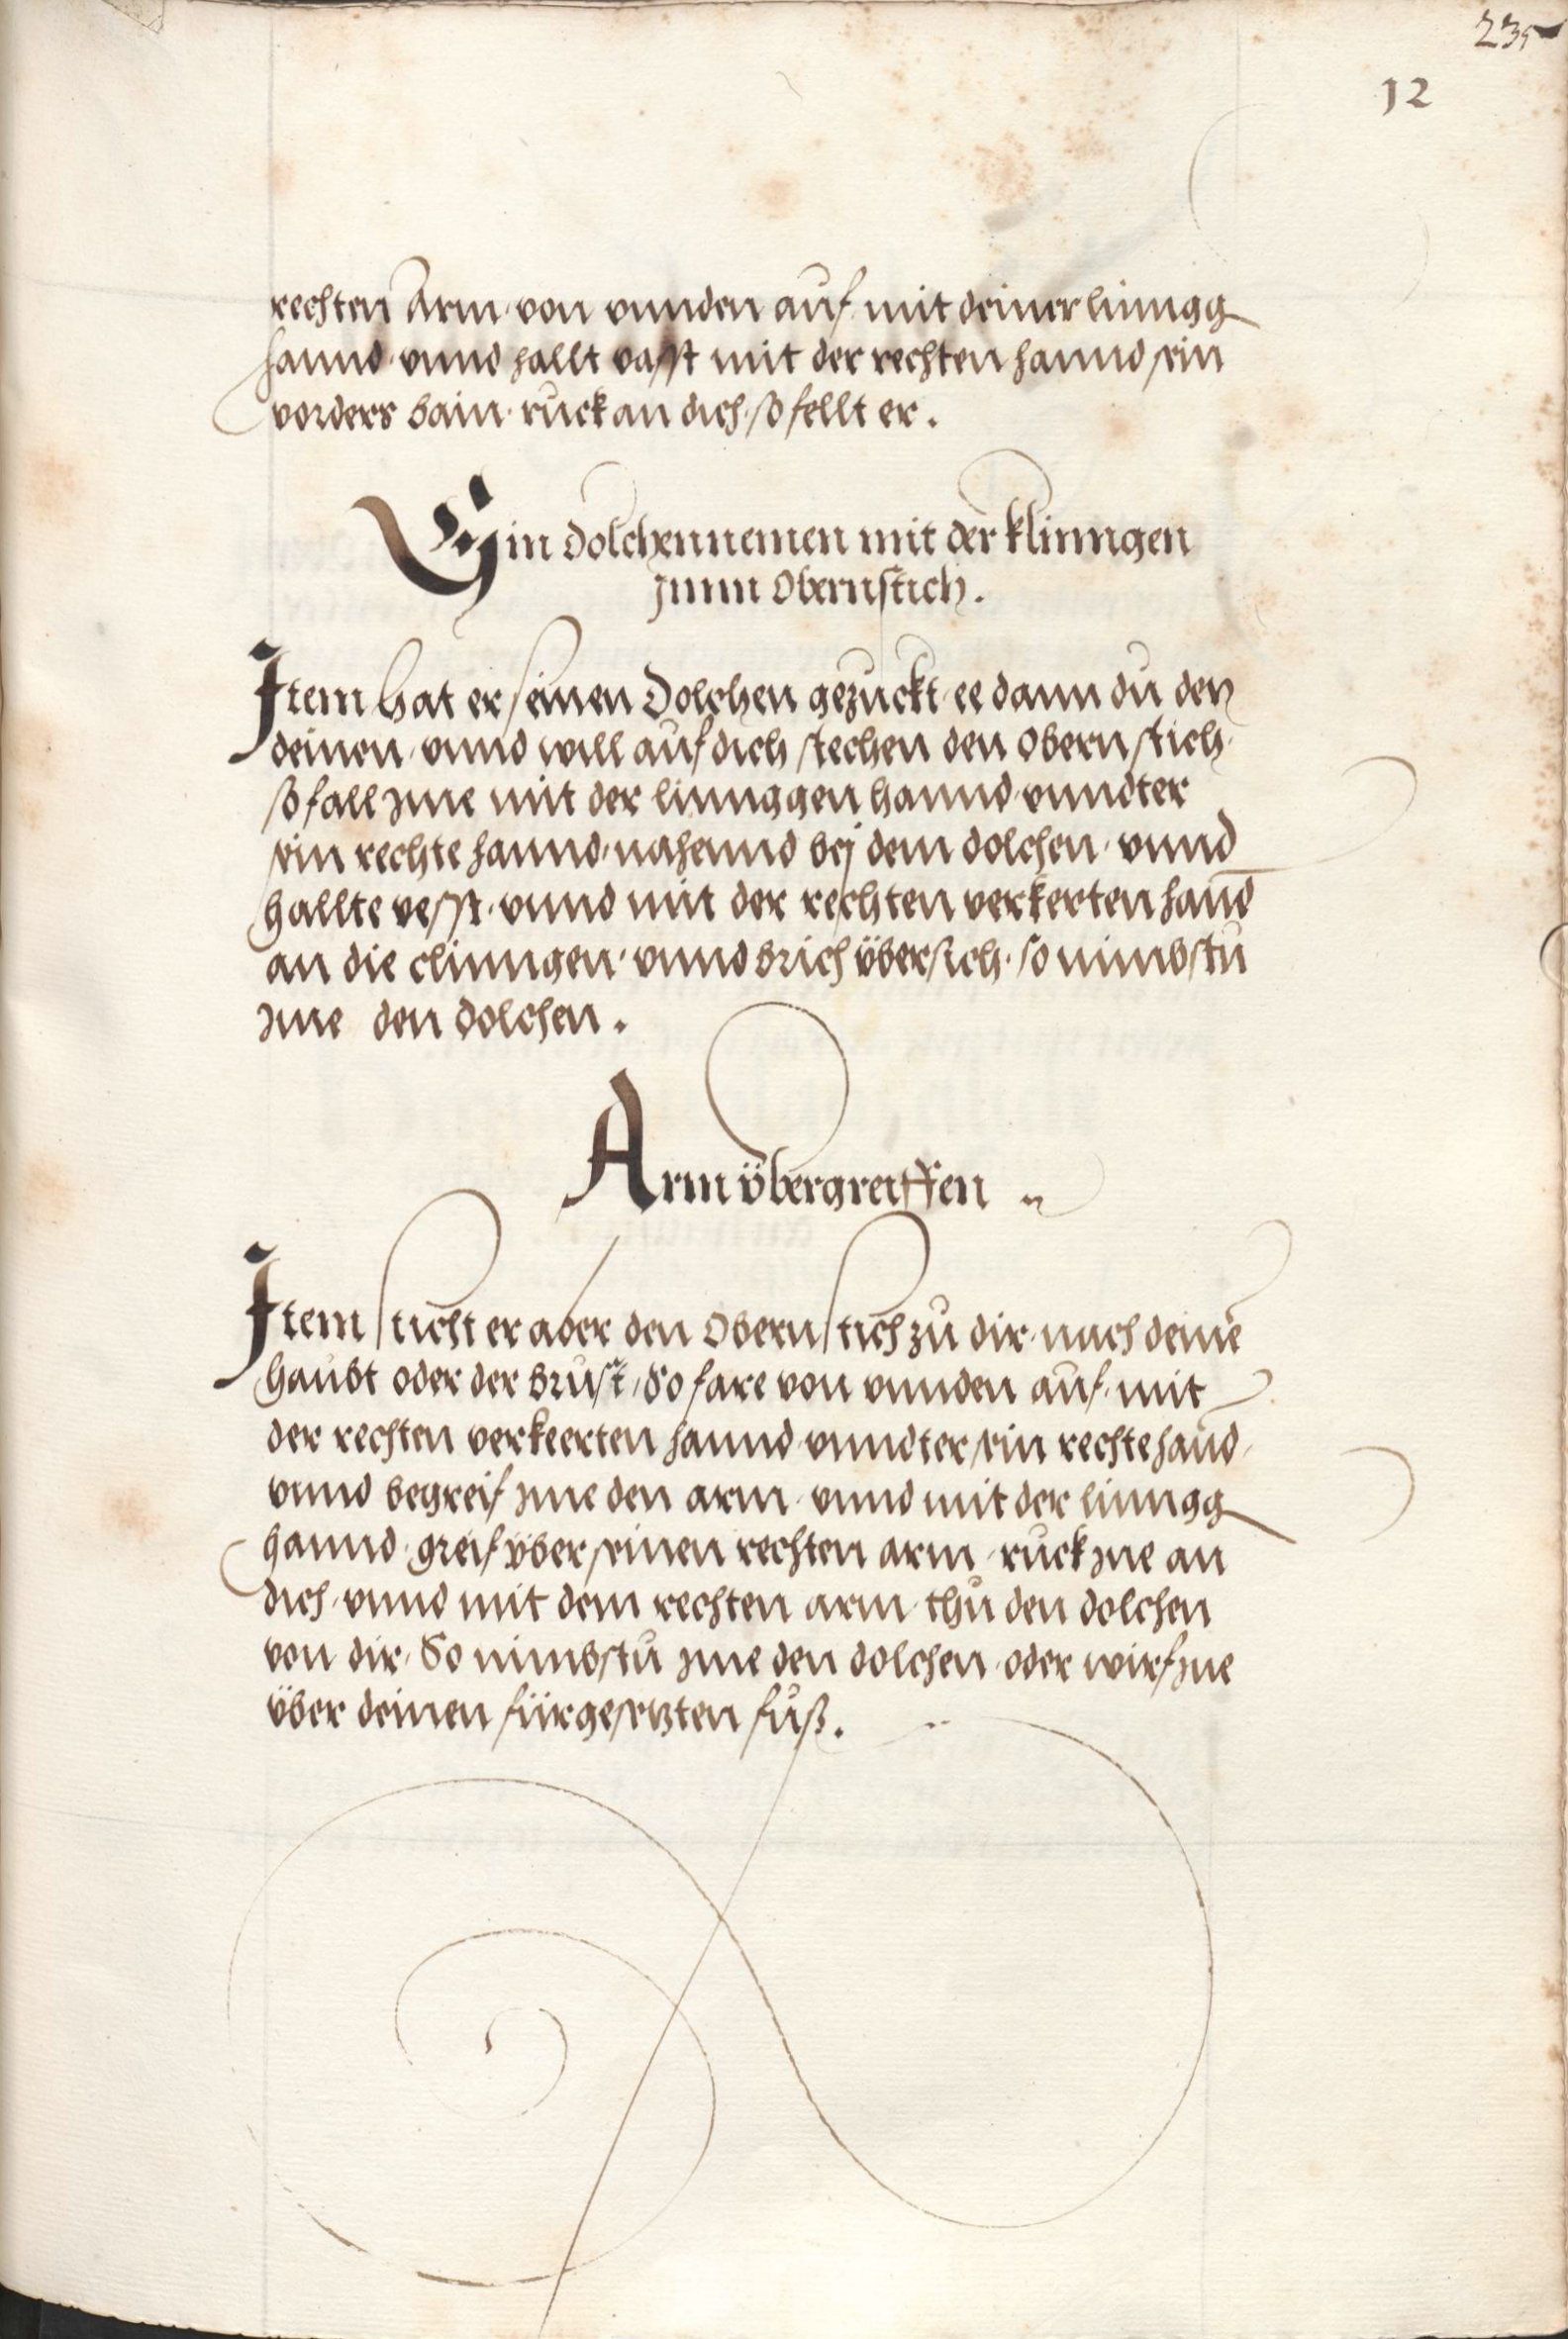 235
12
rechten Arm· von vnnden auf mit deiner linngg
hannd· vnnd hallt vasst mit der rechten hannd sein
vorders bain· ruck an dich· so fellt er.
Ein dolchen nemen mit der klinngen
zum Obernstich.
Item hat er seinen Dolchen gezuckt· ee dann du den
deinen· vnnd will auf dich stechen den Obern stich·
so fall Jme mit der linnggen hannd· vnndter
sein rechte hannd· nahennd bej dem dolchen· vnnd
hallte vesst· vnnd mit der rechten verkerten hañd
an die clinngen· vnnd brich übersich· so nimbstu
Jme den dolchen.
Arm übergreiffen
Item sticht er aber den Obern stich zu dir· nach deinē
haubt oder der brust, So fare von vnnden auf· mit
der rechten verkeerten hannd· vnndter sein rechte hañd·
vnnd begreif Jme den arm· vnnd mit der linngg
hannd· greif über seinen rechten arm· ruck Jne an
dich· vnnd mit dem rechten arm· thu den dolchen
von dir· So nimbstu Jme den dolchen· oder wirf Jne
über deinen fürgesetzten fuß.